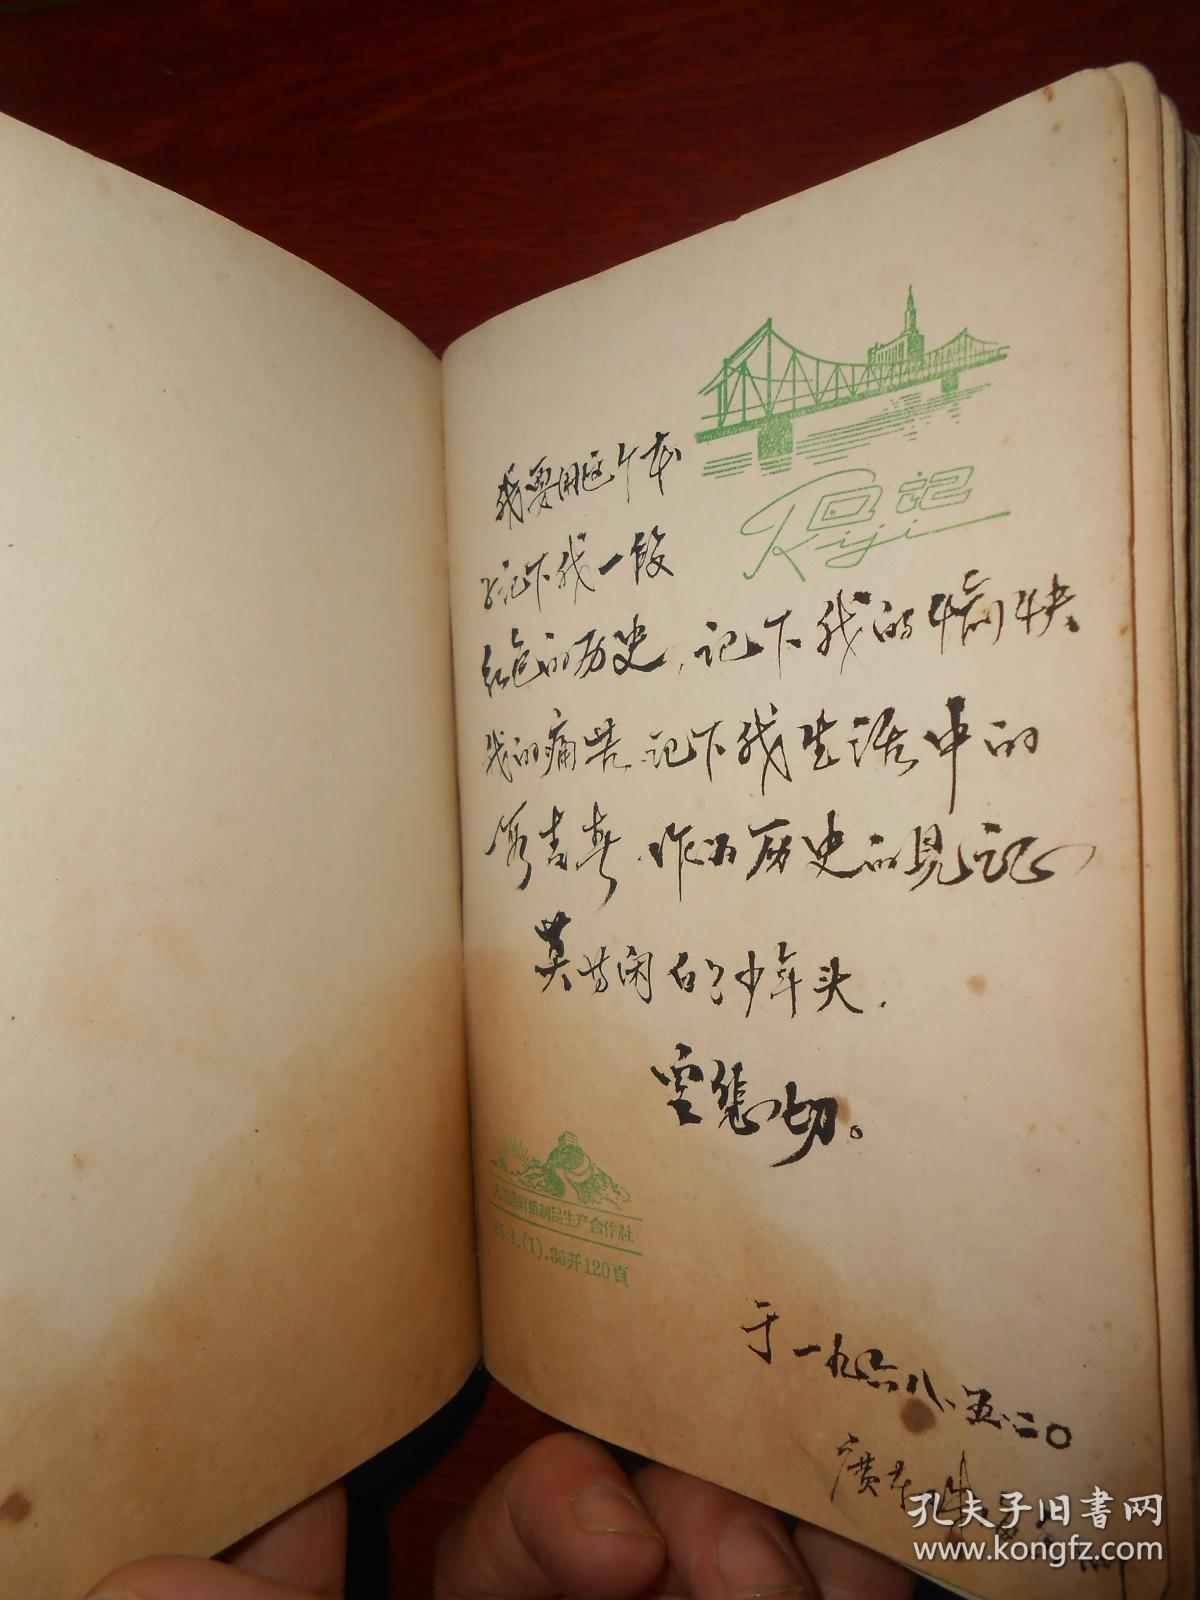 日记
Riji
我要用这个本
子记下我一段
红色的历史，记下我的愉快
我的痛苦，记下我生活中的
青春，作为历史的见证
莫等闲白了少年头．
空悲切。
纸制品生产合作社
65.1.(1).36开120頁
于一九六八、五、二〇
廣东
孔夫子旧书网
www.kongfz.com